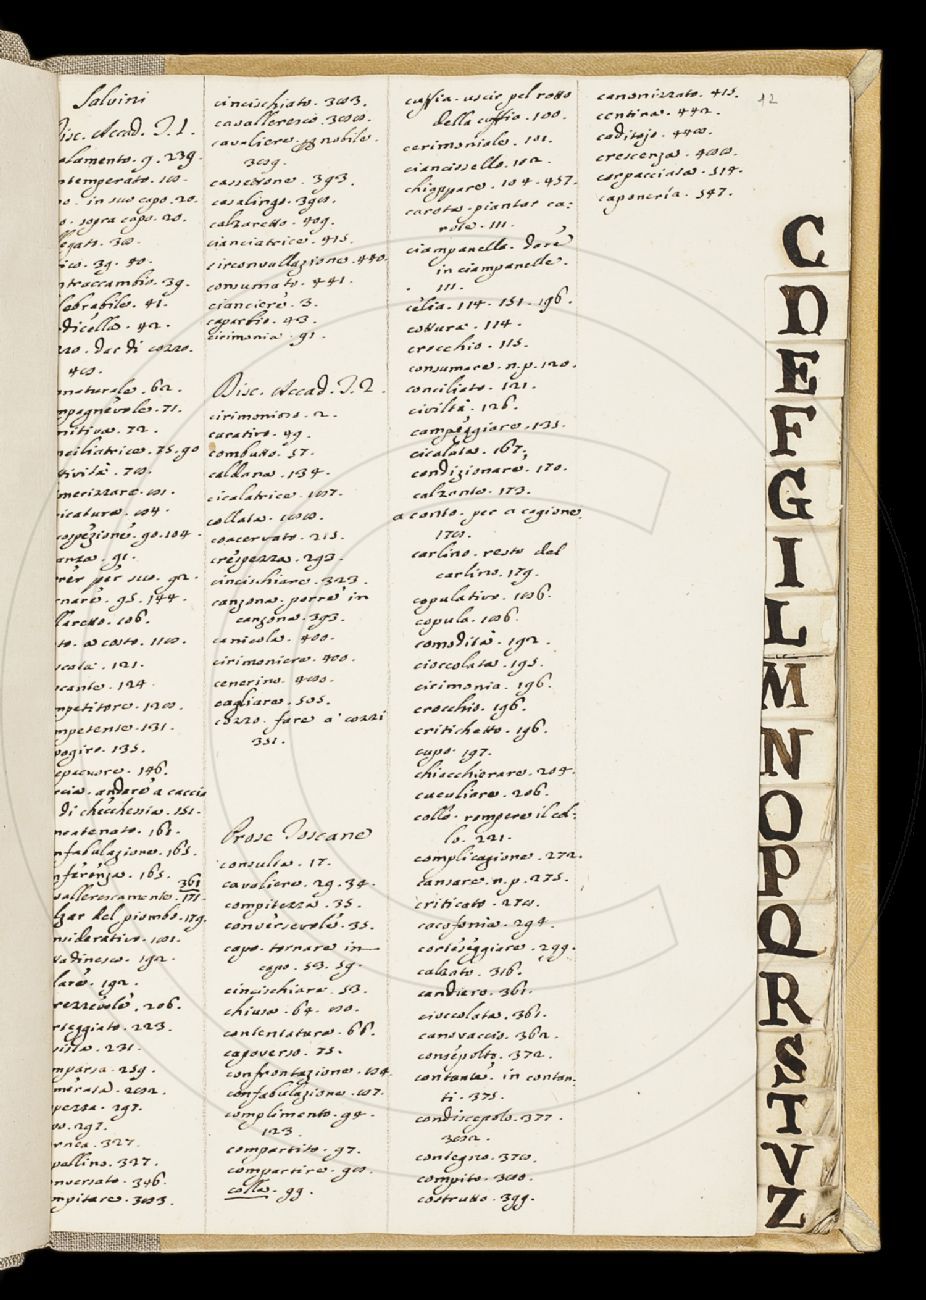 Salvini
Disc. Accad. T. 1.
alamento. 9. 239.
ntemperato. 100.
in suo capo. 20.
sopra capo. 20.
egato. 30.
39. 40.
ntraccambio. 39.
lebrabile. 41.
dicella. 42.
zzo. dar di cozzo.
40.
naturale. 62.
mpagnevole. 71.
nitiva. 72.
nciliatrice. 75. 90
tività. 70.
icatura. 104.
cospezione. 90. 104.
anza. 91.
per suo. 92.
nare. 95. 144.
llaretto. 106.
to. a costo. 110.
121.
cante. 124.
mpetitore. 120.
mpetente. 131.
pogiro. 135.
146.
cia. andare a caccia
di chicchessia. 151.
ncatenato. 161.
nfabulazione. 165.
nferenza. 165.
361
vallerescamente. 171.
lzar del piombo. 179.
nsiderativo. 101.
tadinesco. 192.
lare. 192.
rezzevole. 206.
rteggiato. 223.
231.
mparsa. 259.
merata. 202.
297.
297.
327.
vallino. 327.
nversato. 346.
mpitare. 303.
cincischiato. 303.
cavalleresco. 300.
cavaliere. nobile.
309.
cassettone. 393.
casalingo. 390.
calzaretto. 409.
cianciatrice. 415.
circonvallazione. 440.
consumato. 441.
cianciere. 3.
caparbio. 43.
cirimonia. 91.
Disc. Accad. T. 2.
cirimonioso. 2.
curativo. 49.
combatto. 57.
caldana. 134.
cicalatrice. 107.
collata. 100.
coacervato. 215.
crespezza. 293.
cincischiare. 323.
canzona. porre in
canzona. 393.
canicola. 400.
cirimoniere. 400.
cenerino. 400.
cagliare. 505.
cozzo. fare a' cozzi
351.
Prose Toscane
consulta. 17.
cavaliere. 29. 34.
compitezza. 35.
conversevole. 35.
capo. tornare in
capo. 53. 59.
cincischiare. 53.
chiusa. 64. 100.
contentatura. 66.
capoverso. 75.
confrontazione. 104.
confabulazione. 107.
complimento. 94.
123.
compartito. 97.
compartire. 90.
colla. 99.
cuffia. uscir pel rotto
della cuffia. 100.
cerimoniale. 101.
cianciosello. 102.
chiappare. 104. 457.
carota. piantar ca:
rote. 111.
ciampanelle. dare
in ciampanelle.
111.
celia. 114. 151. 196.
cottura. 114.
crocchio. 115.
consumare. n. p. 120.
conciliato. 121.
civiltà. 126.
campeggiare. 135.
cicalata. 167.
condizionare. 170.
calzante. 173.
a conto. per a cagione
170.
carlino. resto del
carlino. 179.
copulativo. 106.
copula. 106.
comodità. 192.
cioccolata. 195.
cirimonia. 196.
crocchio. 196.
critichetto. 196.
cupo. 197.
chiacchierare. 204.
cuculiare. 206.
collo. rompere il col-
lo. 221.
complicazione. 272.
cansare. n. p. 275.
criticato. 270.
cacofonia. 294.
corteseggiare. 299.
calzato. 316.
candiero. 361.
cioccolata. 361.
canovaccio. 362.
consepolto. 372.
contante. in contan
ti. 375.
condiscepolo. 377.
302.
contegno. 370.
compito. 300.
costrutto. 399.
canonizzato. 415.
centina. 442.
coditojo. 440.
crescenza. 400.
corpacciata. 514.
caponeria. 547.
12
C
D
E
F
G
I
L
M
N
O
P
Q
R
S
T
V
Z